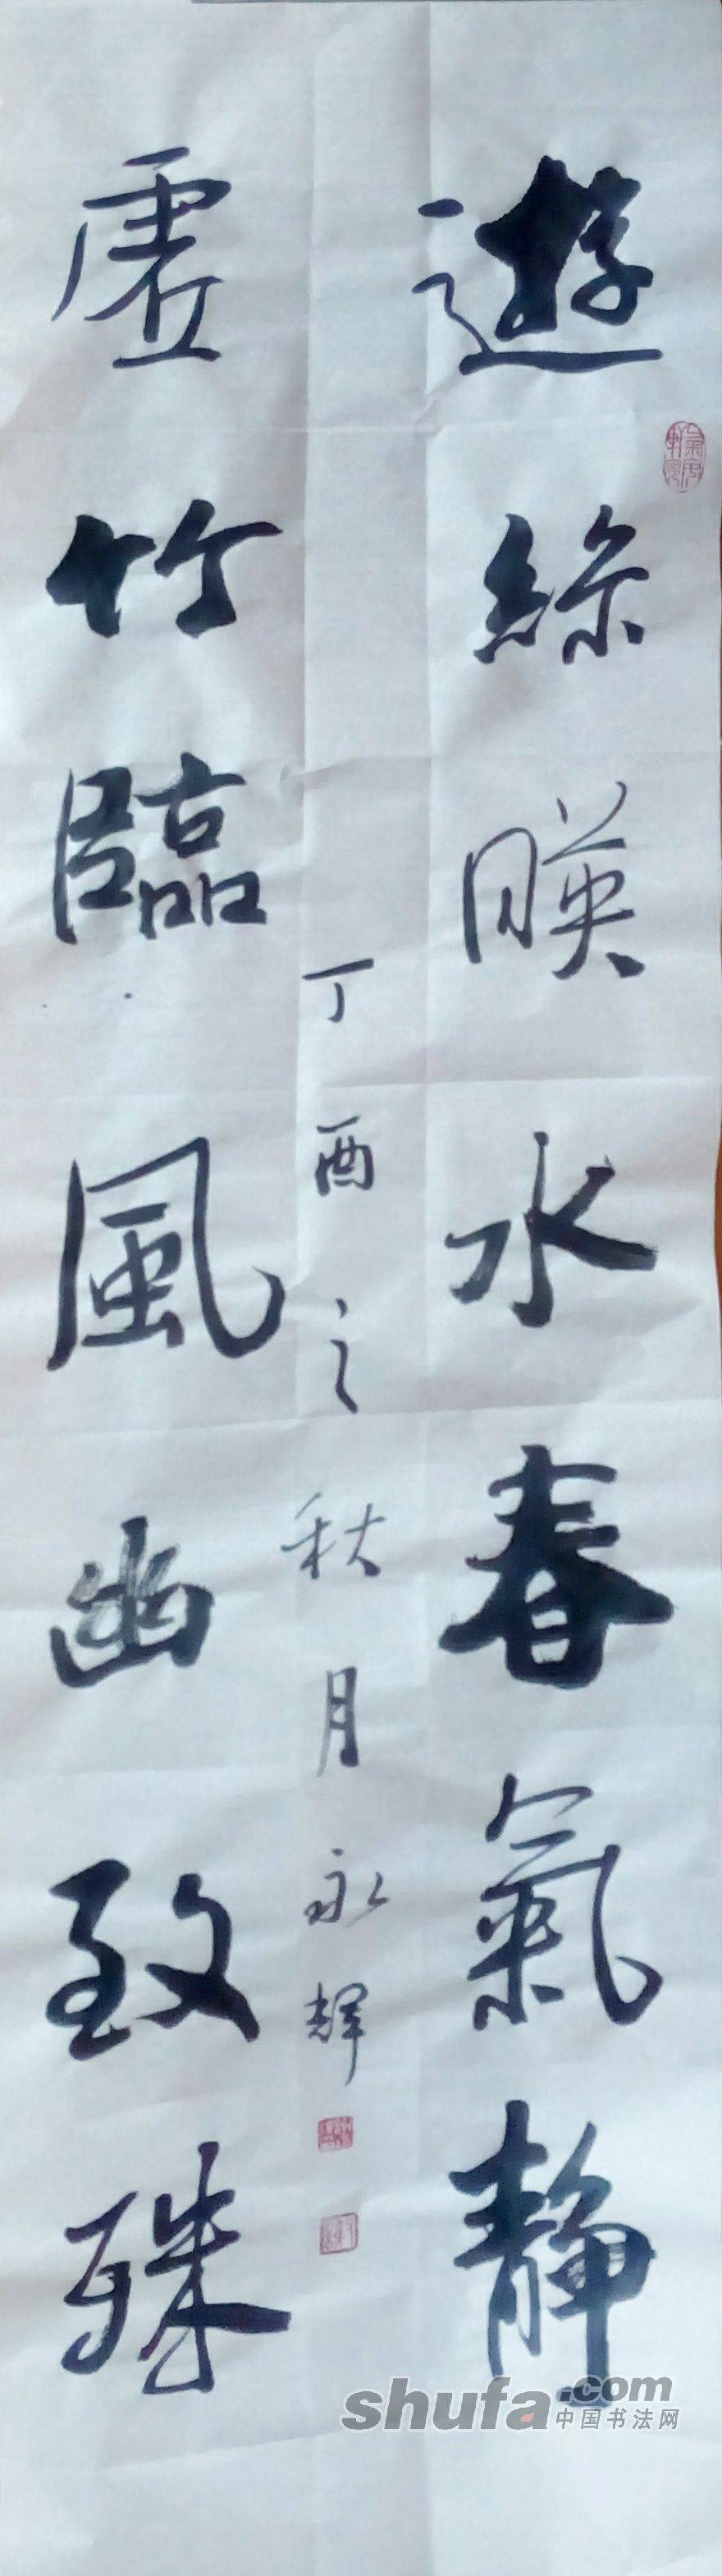 遊絲暎水春氣静
虚竹臨風幽致殊
丁酉之秋月永輝
shufa.com
中国书法网